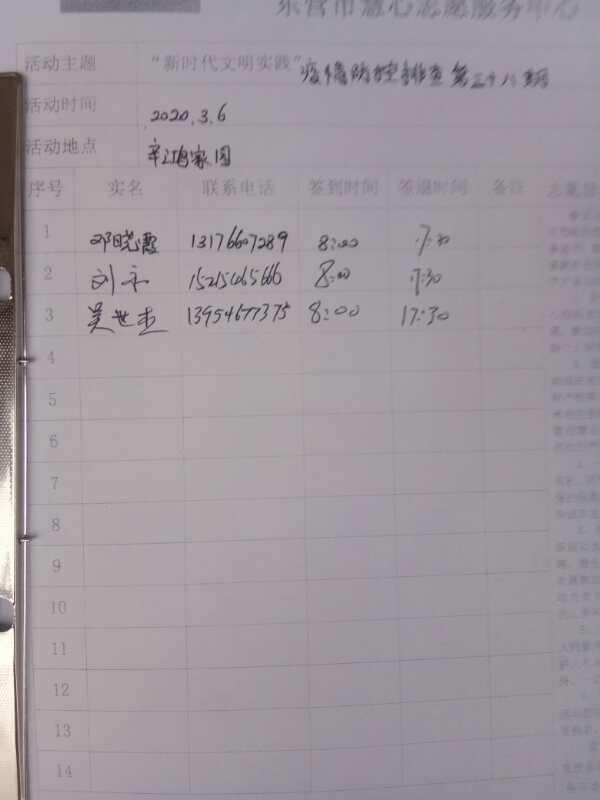 东营市慧心志愿服务中心
活动主题 “新时代文明实践”疫情防控排查第三十八期
活动时间 2020.3.6
活动地点 辛鸿家园
序号 实名 联系电话 签到时间 签退时间 备注
1 邓晓霞 13176607289 8:00 17:30
2 刘 15215465666 8:00 17:30
3 吴世杰 13954677375 8:00 17:30
4
5
6
7
8
9
10
11
12
13
14